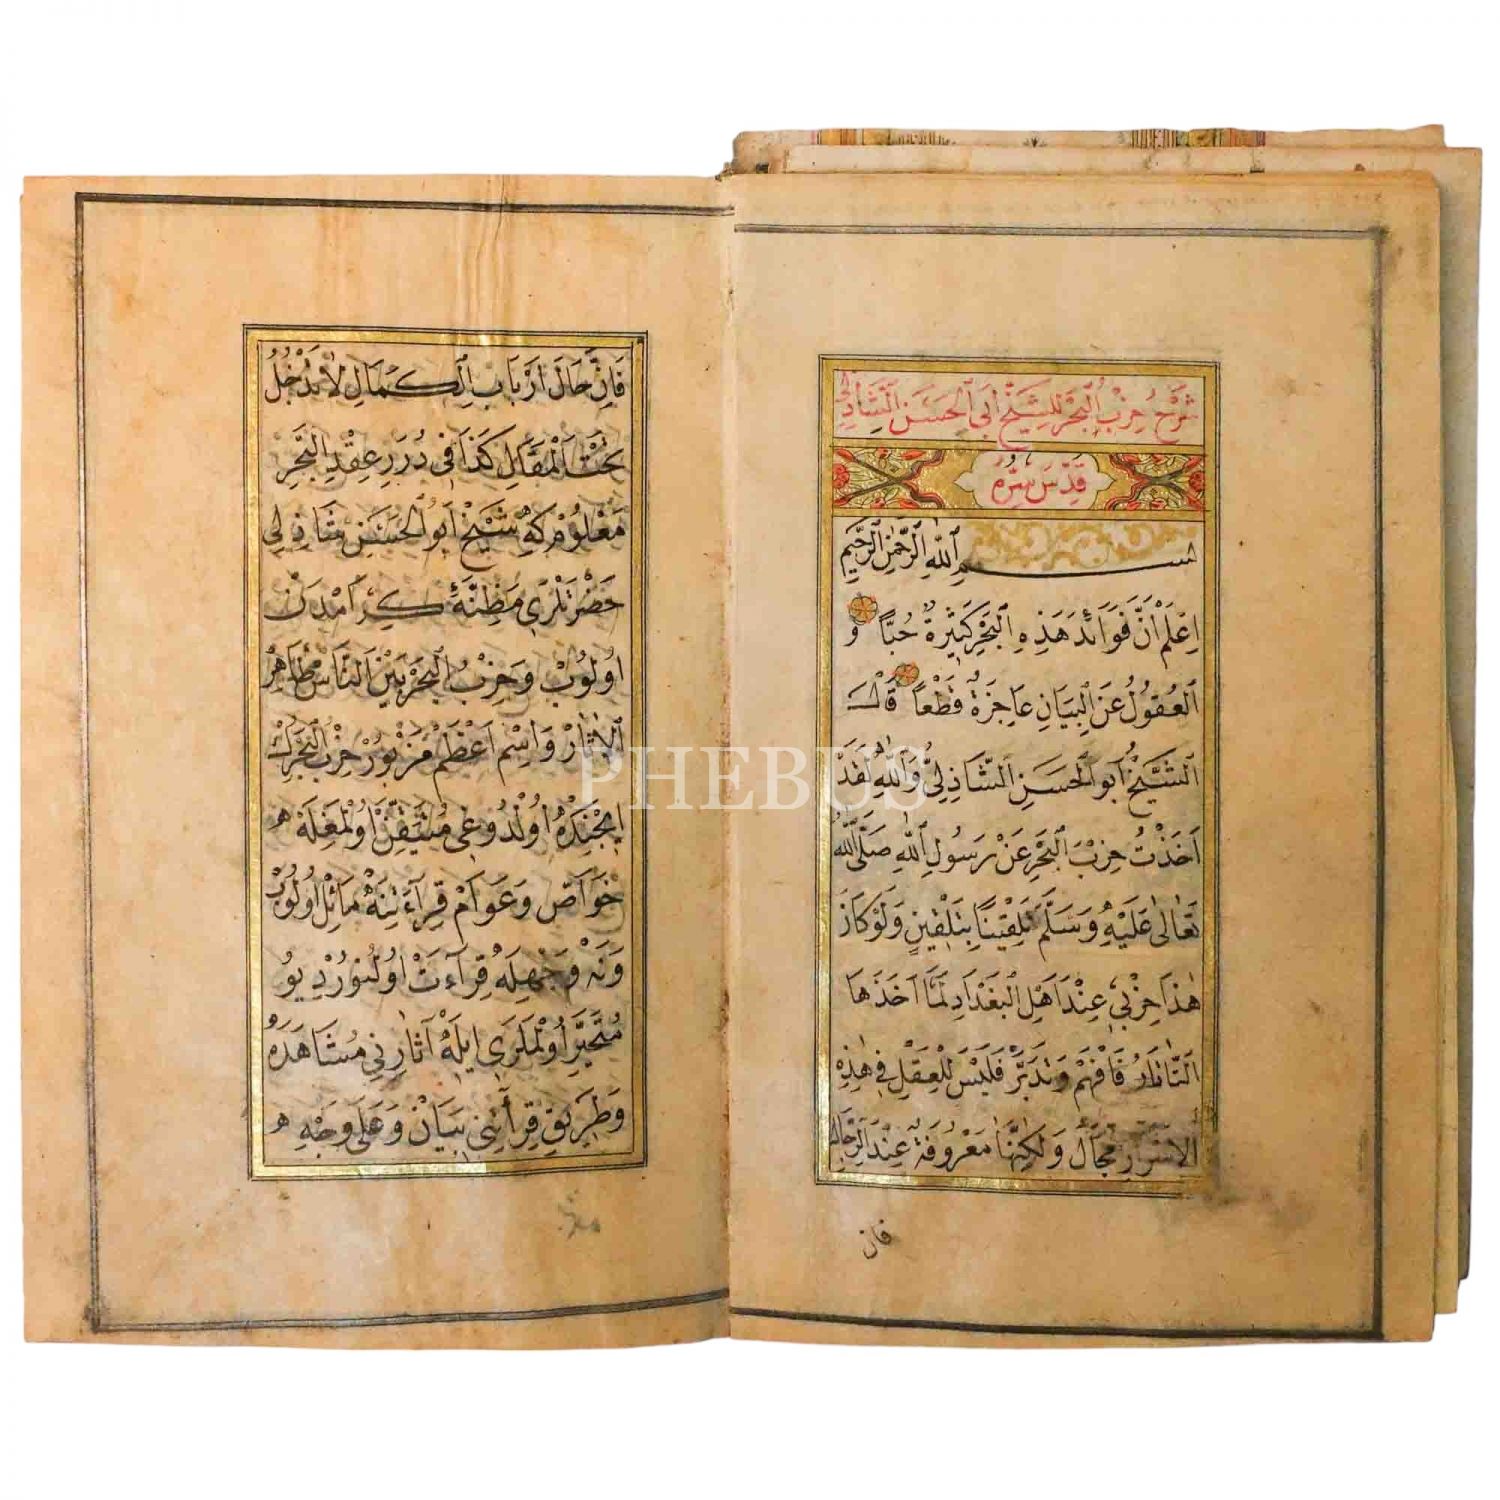 شَرْحُ حِزْبُ الْبَحْرِ لِلشَّيْخِ اَبِى الْحَسَنِ الشَّاذِلِى
قُدِّسَ سِرُّه
بسم اللهِ الرَّحْمٰنِ الرَّحِيمِ
اِعْلَمْ اَنَّ فَوَائِدَ هَذِهِ الْبَحْرِ كَثِيرَةٌ حُبًّا وَ
الْعُقُولُ عَنِ الْبَيَانِ عَاجِزَةٌ قَطْعًا قَالَ
الشَّيْخُ اَبُو الْحَسَنِ الشَّاذِلِىُّ وَاللّٰهِ لَقَدْ
اَخَذْتُ حِزْبَ الْبَحْرِ عَنْ رَسُولِ اللّٰهِ صَلَّى اللّٰهُ
تَعَالٰى عَلَيْهِ وَسَلَّمَ تَلْقِينًا بِتَلْقِينٍ وَلَوْ كَانَ
هٰذَا حِزْبِى عِنْدَ اَهْلِ الْبَغْدَادِ لَمَا اَخَذَهَا
التَّاتَارُ فَافْهَمْ وَتَدَبَّرْ فَلَيْسَ لِلْعَقْلِ فِى هٰذِهِ
الْاَسْرَارِ مَجَالٌ وَلٰكِنَّهَا مَعْرُوفَةٌ عِنْدَ الرِّجَالِ
فان
فَاِنَّ حَالَ اَرْبَابِ الْكَمَالِ لَا تَدْخُلُ
تَحْتَ الْمَقَالِ كَذَا فِى دُرَرِ عِقْدِ الْبَحْرِ
مَعْلُومْ كِه شَيْخْ اَبُو الْحَسَنِ شَاذِلِى
حَضْرَتْلَرِى مَظِنَّۀ كِرَامْدَنْ
اُولُوبْ وَحِزْبُ الْبَحْرِ بَيْنَ النَّاسْ مَظَاهِرْ
الْاٰثَارْ وَاسْمِ اَعْظَمْ مَزْبُورْ حِزْبُ الْبَحْرِكْ
اِيچِنْدَه اُولْدُوغِى مُتَيَقَّنْ اُولْمَغْلَه هر
خَوَاصّ وَعَوَامْ قِرَاءَتِنَه مَائِلْ اُولُوبْ
وَنَه وَجْهِلَه قِرَاءَتْ اُولُنُورْ دِيُو
مُتَحَيِّرْ اُولْمَلَرِى اِيلَه آثَارِنِى مُشَاهَدَه
وَطَرِيقِ قِرَاءَتِنِى بَيَانْ وَعَلٰى وَجْهِ هـ
PHEBUS